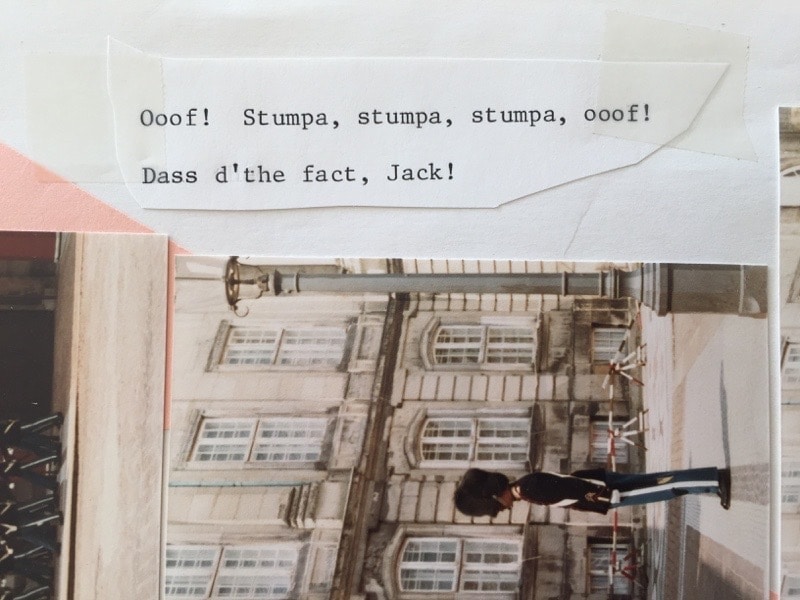 Ooof!  Stumpa, stumpa, stumpa, ooof!
Dass d'the fact, Jack!